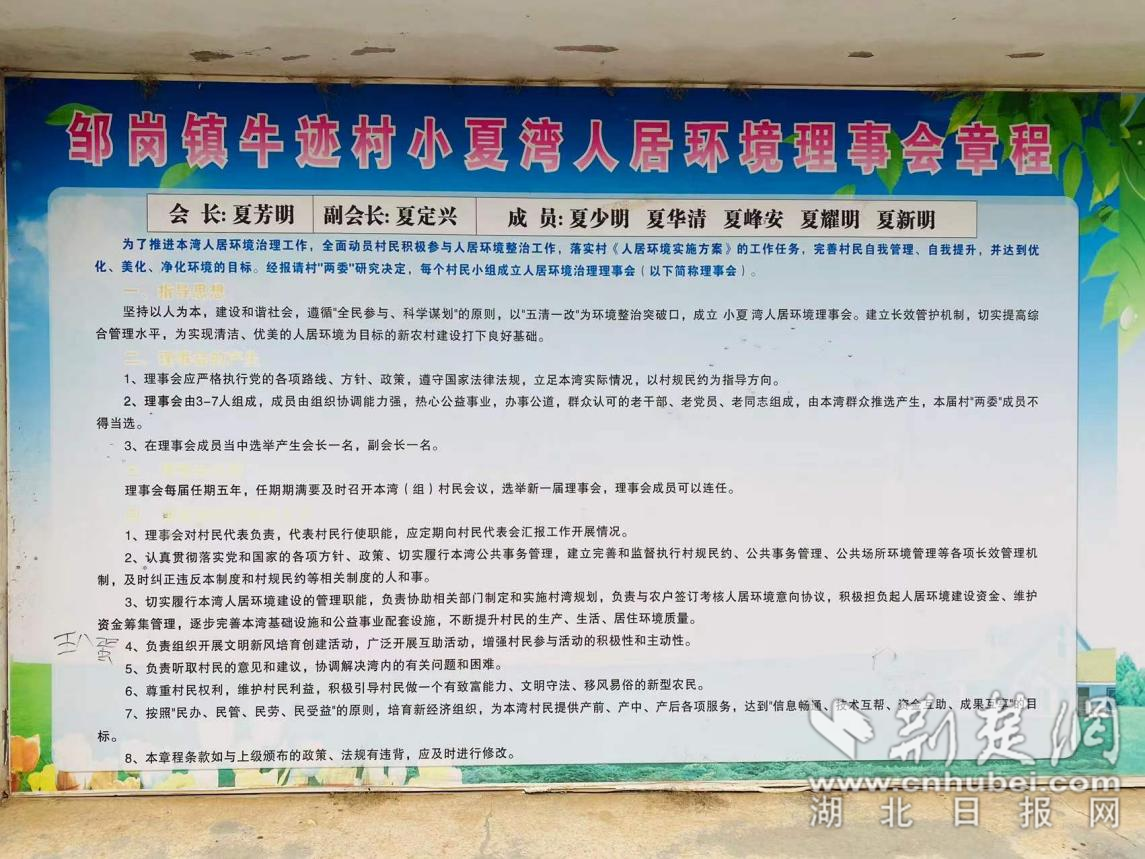 邹岗镇牛迹村小夏湾人居环境理事会章程
会 长: 夏芳明 副会长: 夏定兴 成 员: 夏少明 夏华清 夏峰安 夏耀明 夏新明
为了推进本湾人居环境治理工作，全面动员村民积极参与人居环境整治工作，落实村《人居环境实施方案》的工作任务，完善村民自我管理、自我提升，并达到优
化、美化、净化环境的目标。经报请村"两委"研究决定，每个村民小组成立人居环境治理理事会（以下简称理事会）。
一、指导思想
坚持以人为本，建设和谐社会，遵循"全民参与、科学谋划"的原则，以"五清一改"为环境整治突破口，成立 小夏 湾人居环境理事会。建立长效管护机制，切实提高综
合管理水平，为实现清洁、优美的人居环境为目标的新农村建设打下良好基础。
二、理事会的产生
1、理事会应严格执行党的各项路线、方针、政策，遵守国家法律法规，立足本湾实际情况，以村规民约为指导方向。
2、理事会由3-7人组成，成员由组织协调能力强，热心公益事业，办事公道，群众认可的老干部、老党员、老同志组成，由本湾群众推选产生，本届村"两委"成员不
得当选。
3、在理事会成员当中选举产生会长一名，副会长一名。
理事会每届任期五年，任期期满要及时召开本湾（组）村民会议，选举新一届理事会，理事会成员可以连任。
1、理事会对村民代表负责，代表村民行使职能，应定期向村民代表会汇报工作开展情况。
2、认真贯彻落实党和国家的各项方针、政策、切实履行本湾公共事务管理，建立完善和监督执行村规民约、公共事务管理、公共场所环境管理等各项长效管理机
制，及时纠正违反本制度和村规民约等相关制度的人和事。
3、切实履行本湾人居环境建设的管理职能，负责协助相关部门制定和实施村湾规划，负责与农户签订考核人居环境意向协议，积极担负起人居环境建设资金、维护
资金筹集管理，逐步完善本湾基础设施和公益事业配套设施，不断提升村民的生产、生活、居住环境质量。
王八蛋
4、负责组织开展文明新风培育创建活动，广泛开展互助活动，增强村民参与活动的积极性和主动性。
5、负责听取村民的意见和建议，协调解决湾内的有关问题和困难。
6、尊重村民权利，维护村民利益，积极引导村民做一个有致富能力、文明守法、移风易俗的新型农民。
7、按照"民办、民管、民劳、民受益"的原则，培育新经济组织，为本湾村民提供产前、产中、产后各项服务，达到"信息畅通、技术互帮、资金互助、成果互享"的目
标。
8、本章程条款如与上级颁布的政策、法规有违背，应及时进行修改。
荆楚网
www.cnhubei.com
湖北日报网